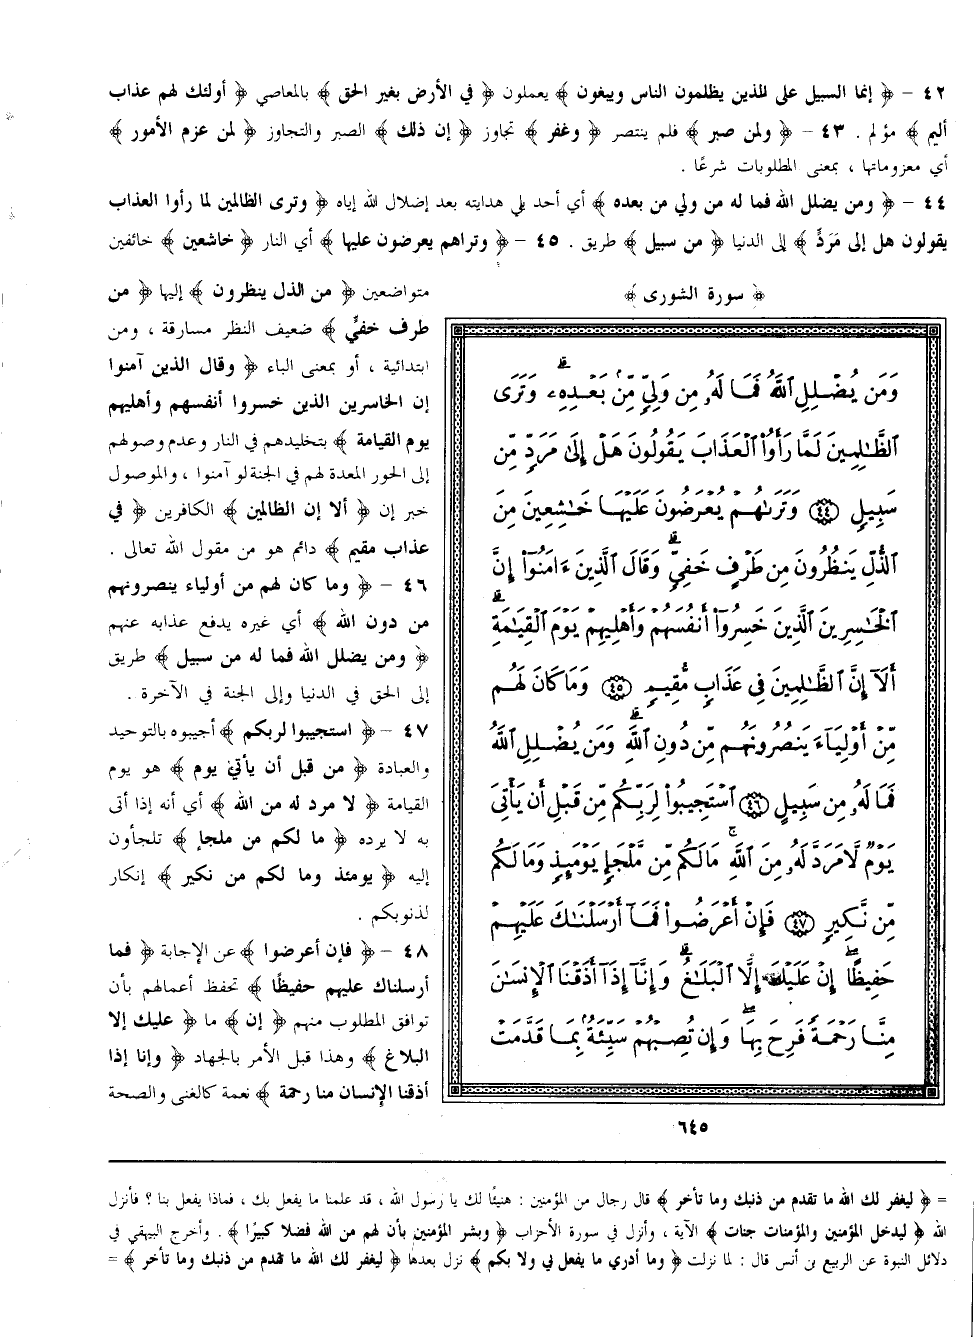 ٤٢ – ﴿ إنما السبيل على الذين يظلمون الناس ويبغون ﴾ يعملون ﴿ في الأرض بغير الحق ﴾ بالمعاصي ﴿ أولئك لهم عذاب
أليم ﴾ مؤلم . ٤٣ – ﴿ ولمن صبر ﴾ فلم ينتصر ﴿ وغفر ﴾ تجاوز ﴿ إن ذلك ﴾ الصبر والتجاوز ﴿ لمن عزم الأمور ﴾
أي معزوماتها ، بمعنى المطلوبات شرعًا .
٤٤ – ﴿ ومن يضلل الله فما له من ولي من بعده ﴾ أي أحد يلي هدايته بعد إضلال الله إياه ﴿ وترى الظالمين لما رأوا العذاب
يقولون هل إلى مَرَدٍّ ﴾ إلى الدنيا ﴿ من سبيل ﴾ طريق . ٤٥ – ﴿ وتراهم يعرضون عليها ﴾ أي النار ﴿ خاشعين ﴾ خائفين
متواضعين ﴿ من الذل ينظرون ﴾ إليها ﴿ من
طرف خفيٍّ ﴾ ضعيف النظر مسارقة ، ومن
ابتدائية ، أو بمعنى الباء ﴿ وقال الذين آمنوا
إن الخاسرين الذين خسروا أنفسهم وأهليهم
يوم القيامة ﴾ بتخليدهم في النار وعدم وصولهم
إلى الحور المعدة لهم في الجنة لو آمنوا ، والموصول
خبر إن ﴿ ألا إن الظالمين ﴾ الكافرين ﴿ في
عذاب مقيم ﴾ دائم هو من مقول الله تعالى .
٤٦ – ﴿ وما كان لهم من أولياء ينصرونهم
من دون الله ﴾ أي غيره يدفع عذابه عنهم
﴿ ومن يضلل الله فما له من سبيل ﴾ طريق
إلى الحق في الدنيا وإلى الجنة في الآخرة .
٤٧ – ﴿ استجيبوا لربكم ﴾ أجيبوه بالتوحيد
والعبادة ﴿ من قبل أن يأتي يوم ﴾ هو يوم
القيامة ﴿ لا مرد له من الله ﴾ أي أنه إذا أتى
به لا يرده ﴿ ما لكم من ملجإ ﴾ تلجأون
إليه ﴿ يومئذ وما لكم من نكير ﴾ إنكار
لذنوبكم .
٤٨ – ﴿ فإن أعرضوا ﴾ عن الإجابة ﴿ فما
أرسلناك عليهم حفيظًا ﴾ تحفظ أعمالهم بأن
توافق المطلوب منهم ﴿ إن ﴾ ما ﴿ عليك إلا
البلاغ ﴾ وهذا قبل الأمر بالجهاد ﴿ وإنا إذا
أذقنا الإنسان منا رحمة ﴾ نعمة كالغنى والصحة
﴿ سورة الشورى ﴾
وَمَن يُضْلِلِ ٱللَّهُ فَمَا لَهُۥ مِن وَلِيٍّ مِّنۢ بَعْدِهِۦ ۗ وَتَرَى
ٱلظَّٰلِمِينَ لَمَّا رَأَوُا۟ ٱلْعَذَابَ يَقُولُونَ هَلْ إِلَىٰ مَرَدٍّ مِّن
سَبِيلٍ ٤٤ وَتَرَىٰهُمْ يُعْرَضُونَ عَلَيْهَا خَٰشِعِينَ مِنَ
ٱلذُّلِّ يَنظُرُونَ مِن طَرْفٍ خَفِيٍّ ۗ وَقَالَ ٱلَّذِينَ ءَامَنُوٓا۟ إِنَّ
ٱلْخَٰسِرِينَ ٱلَّذِينَ خَسِرُوٓا۟ أَنفُسَهُمْ وَأَهْلِيهِمْ يَوْمَ ٱلْقِيَٰمَةِ ۗ
أَلَآ إِنَّ ٱلظَّٰلِمِينَ فِى عَذَابٍ مُّقِيمٍ ٤٥ وَمَا كَانَ لَهُم
مِّنْ أَوْلِيَآءَ يَنصُرُونَهُم مِّن دُونِ ٱللَّهِ ۗ وَمَن يُضْلِلِ ٱللَّهُ
فَمَا لَهُۥ مِن سَبِيلٍ ٤٦ ٱسْتَجِيبُوا۟ لِرَبِّكُم مِّن قَبْلِ أَن يَأْتِىَ
يَوْمٌ لَّا مَرَدَّ لَهُۥ مِنَ ٱللَّهِ ۚ مَا لَكُم مِّن مَّلْجَإٍ يَوْمَئِذٍ وَمَا لَكُم
مِّن نَّكِيرٍ ٤٧ فَإِنْ أَعْرَضُوا۟ فَمَآ أَرْسَلْنَٰكَ عَلَيْهِمْ
حَفِيظًا ۖ إِنْ عَلَيْكَ إِلَّا ٱلْبَلَٰغُ ۗ وَإِنَّآ إِذَآ أَذَقْنَا ٱلْإِنسَٰنَ
مِنَّا رَحْمَةً فَرِحَ بِهَا ۖ وَإِن تُصِبْهُمْ سَيِّئَةٌۢ بِمَا قَدَّمَتْ
٦٤٥
= ﴿ ليغفر لك الله ما تقدم من ذنبك وما تأخر ﴾ قال رجال من المؤمنين : هنيئًا لك يا رسول الله ، قد علمنا ما يفعل بك ، فماذا يفعل بنا ؟ فأنزل
الله ﴿ ليدخل المؤمنين والمؤمنات جنات ﴾ الآية ، وأنزل في سورة الأحزاب ﴿ وبشر المؤمنين بأن لهم من الله فضلا كبيرًا ﴾ . وأخرج البيهقي في
دلائل النبوة عن الربيع بن أنس قال : لما نزلت ﴿ وما أدري ما يفعل بي ولا بكم ﴾ نزل بعدها ﴿ ليغفر لك الله ما تقدم من ذنبك وما تأخر ﴾ =